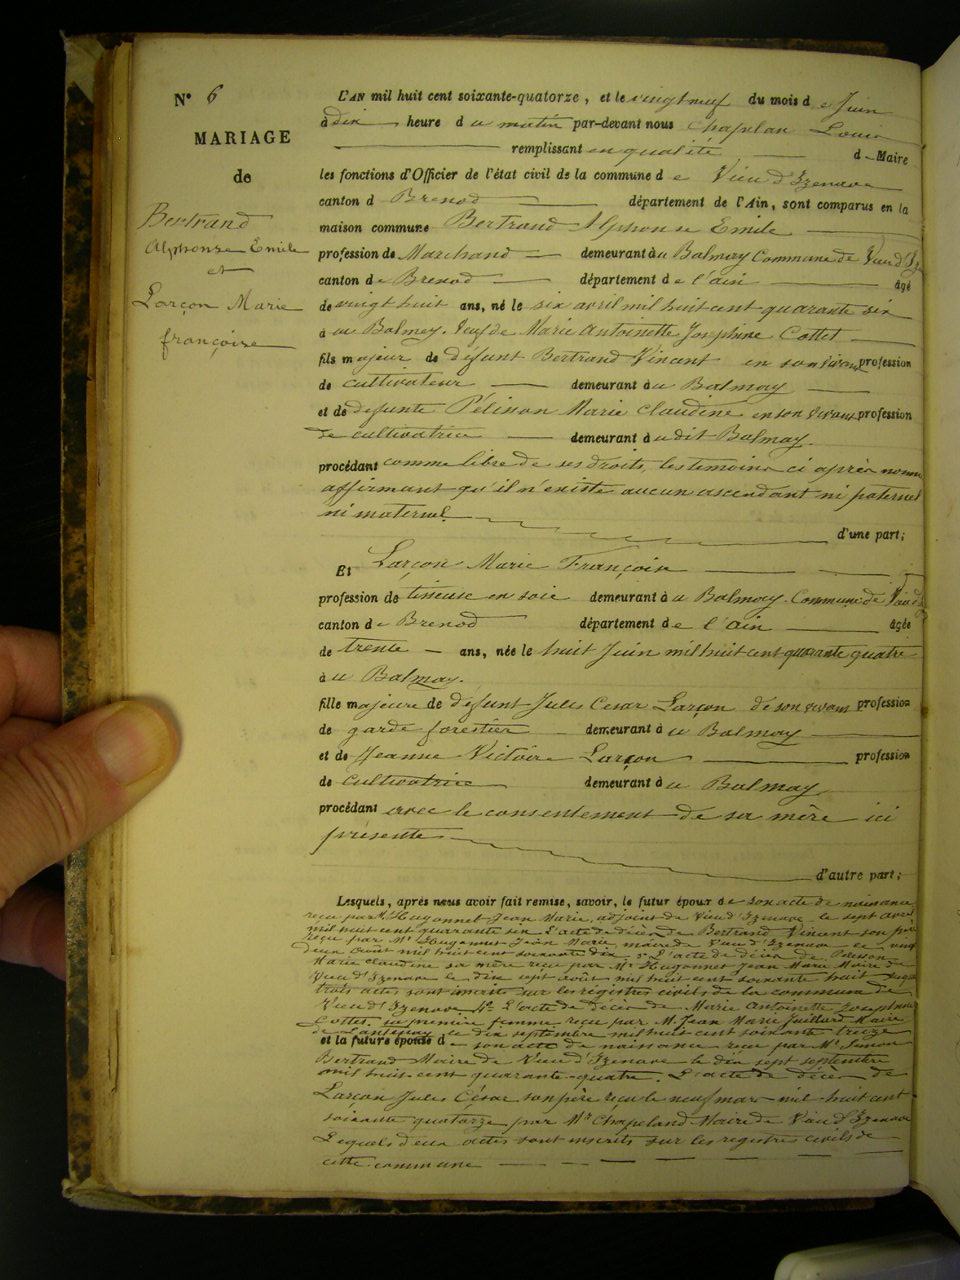 N° 6
MARIAGE
de
Bertrand
Alphonse Emile
et
Larçon Marie
françoise
L'AN mil huit cent soixante-quatorze, et le vingt neuf du mois de Juin
à dix heure du matin par-devant nous Chapelan Louis
remplissant en qualité d Maire
les fonctions d'Officier de l'état civil de la commune de Vieu d'Izenave
canton d Brenod département de l'Ain, sont comparus en la
maison commune Bertrand Alphonse Emile
profession de Marchand demeurant au Balmay Commune de Vieu d'Iz
canton de Brenod département de l'ain âgé
de vingt huit ans, né le six avril mil huit cent quarante six
à au Balmey. Veuf de Marie Antoinette Josephine Cottet
fils majeur de défunt Bertrand Vincent en son vivant profession
de cultivateur demeurant à u Balmay
et de defunte Pélisson Marie Claudine en son vivant profession
de cultivatrice demeurant à u dit Balmay.
procédant comme libre de ses droits, les temoins ci après nommés
affirmant qu'il n'existe aucun ascendant ni paternel
ni maternel d'une part;
Et Larçon Marie Françoise
profession de tisseuse en soie demeurant à u Balmay Commune de Vieu d'
canton de Brenod département de l'ain âgée
de trente ans, née le huit Juin mil huit cent quarante quatre
à u Balmay.
fille majeure de défunt Jules Cesar Larçon de son vivant profession
de garde forestier demeurant à u Balmay
et de Jeanne Victoire Larçon profession
de cultivatrice demeurant à u Balmay
procédant avec le consentement de sa mère ici
présente
d'autre part;
Lesquels, après nous avoir fait remise, savoir, le futur époux de son acte de naissance
reçu par Mr Hugonnet Jean Marie, adjoint de Vieu d'Izenave le sept avril
mil huit cent quarante six 2° l'acte de décès de Bertrand Vincent son père
reçu par Mr Hugonnet Jean Marie maire de Vieu d'Izenave le vingt
deux août mil huit cent soixante dix 3° l'acte de décès de Pelisson
Marie Claudine sa mère reçu par Mr Hugonnet Jean Marie Maire de
Vieu d'Izenave le dix sept août mil huit cent soixante huit
trois actes sont inscrits sur les régistres civils de la commune de
Vieu d'Izenave. 4° L'acte de décès de Marie Antoinette Josephine
Cottet, sa première femme reçu par M. Jean Marie Juillard Maire
de Lantenay le dix septembre mil huit cent soixante treize
et la future épouse de son acte de naissance reçu par Mr Simon
Bertrand Maire de Vieu d'Izenave le dix sept septembre
mil huit-cent quarante-quatre. L'acte de décès de
Larçon Jules César son père reçu le neuf mars mil huit cent
soixante quatorze par Mr Chapeland Maire de Vieu d'Izenave
Lequels deux actes sont inscrits sur les registres civils de
cette commune